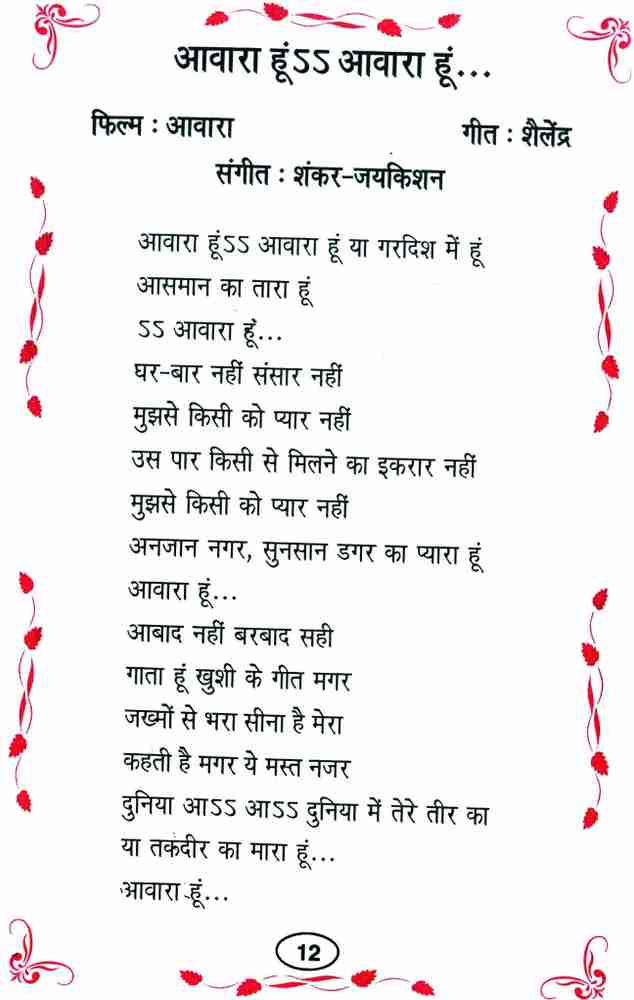 आवारा हूंऽऽ आवारा हूं...
फिल्म : आवारा
गीत : शैलेंद्र
संगीत : शंकर-जयकिशन
आवारा हूंऽऽ आवारा हूं या गरदिश में हूं
आसमान का तारा हूं
ऽऽ आवारा हूं...
घर-बार नहीं संसार नहीं
मुझसे किसी को प्यार नहीं
उस पार किसी से मिलने का इकरार नहीं
मुझसे किसी को प्यार नहीं
अनजान नगर, सुनसान डगर का प्यारा हूं
आवारा हूं...
आबाद नहीं बरबाद सही
गाता हूं खुशी के गीत मगर
जख्मों से भरा सीना है मेरा
कहती है मगर ये मस्त नजर
दुनिया आऽऽ आऽऽ दुनिया में तेरे तीर का
या तकदीर का मारा हूं...
आवारा हूं...
12